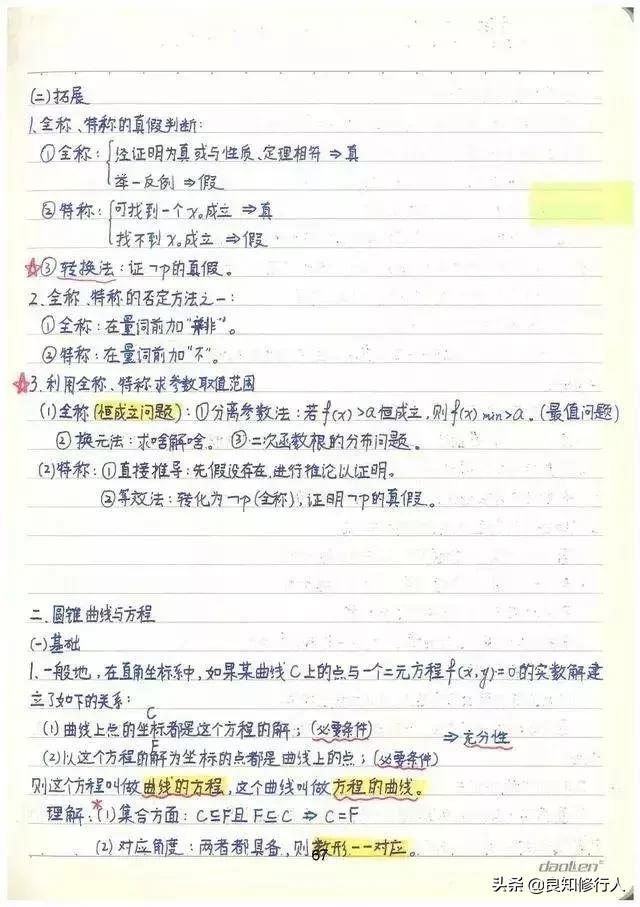 (二)拓展
1.全称、特称的真假判断:
①全称:{经证明为真或与性质、定理相符 ⇒真
举一反例 ⇒假
②特称:{可找到一个x₀成立 ⇒真
找不到x₀成立 ⇒假
☆③转换法:证¬p的真假。
2.全称、特称的否定方法之一:
①全称:在量词前加“并非”。
②特称:在量词前加“不”。
☆3.利用全称、特称求参数取值范围
(1)全称(恒成立问题):①分离参数法:若f(x)>a恒成立,则f(x)min>a。(最值问题)
②换元法:求啥解啥。 ③二次函数根的分布问题。
(2)特称:①直接推导:先假设存在,进行推论以证明。
②等效法:转化为¬p(全称),证明¬p的真假。
二.圆锥曲线与方程
(一)基础
1.一般地,在直角坐标系中,如果某曲线C上的点与一个二元方程f(x,y)=0的实数解建
立了如下的关系:
C
(1)曲线上点的坐标都是这个方程的解;(必要条件) ⇒充分性
F
(2)以这个方程的解为坐标的点都是曲线上的点;(必要条件)
则这个方程叫做曲线的方程,这个曲线叫做方程的曲线。
理解:*(1)集合方面:C⊆F且F⊆C ⇒ C=F
(2)对应角度:两者都具备,则数形一一对应。
67
daolien
头条 @良知修行人